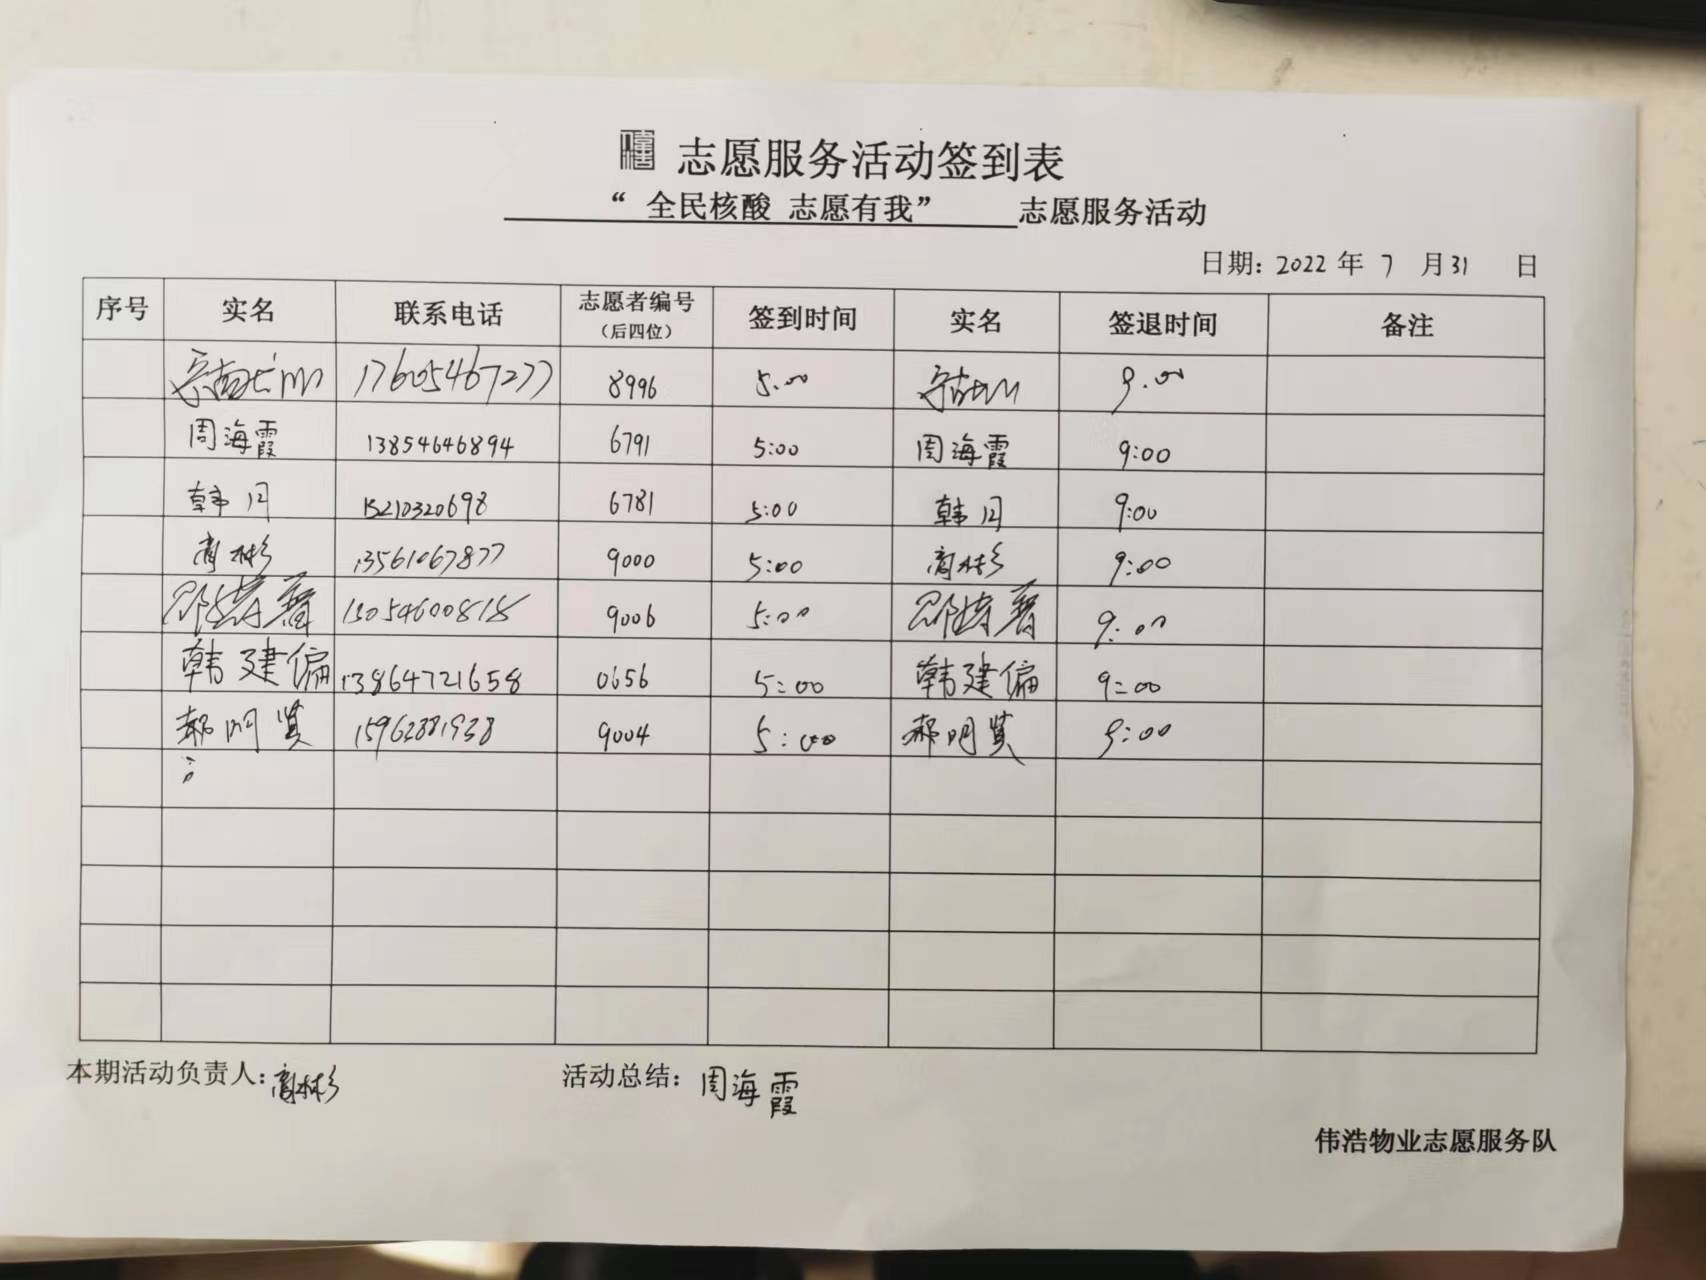 志愿服务活动签到表
“ 全民核酸 志愿有我” 志愿服务活动
日期: 2022 年 7 月 31 日
序号 实名 联系电话 志愿者编号（后四位） 签到时间 实名 签退时间 备注
17605467277 8996 5:00 9:00
周海霞 13854646894 6791 5:00 周海霞 9:00
韩月 15210320698 6781 5:00 韩月 9:00
高彬 13561067877 9000 5:00 高彬 9:00
13054600818 9006 5:00 9:00
韩建偏 13864721658 0656 5:00 韩建偏 9:00
郝明贤 15962881938 9004 5:00 郝明贤 9:00
本期活动负责人: 高彬 活动总结: 周海霞
伟浩物业志愿服务队